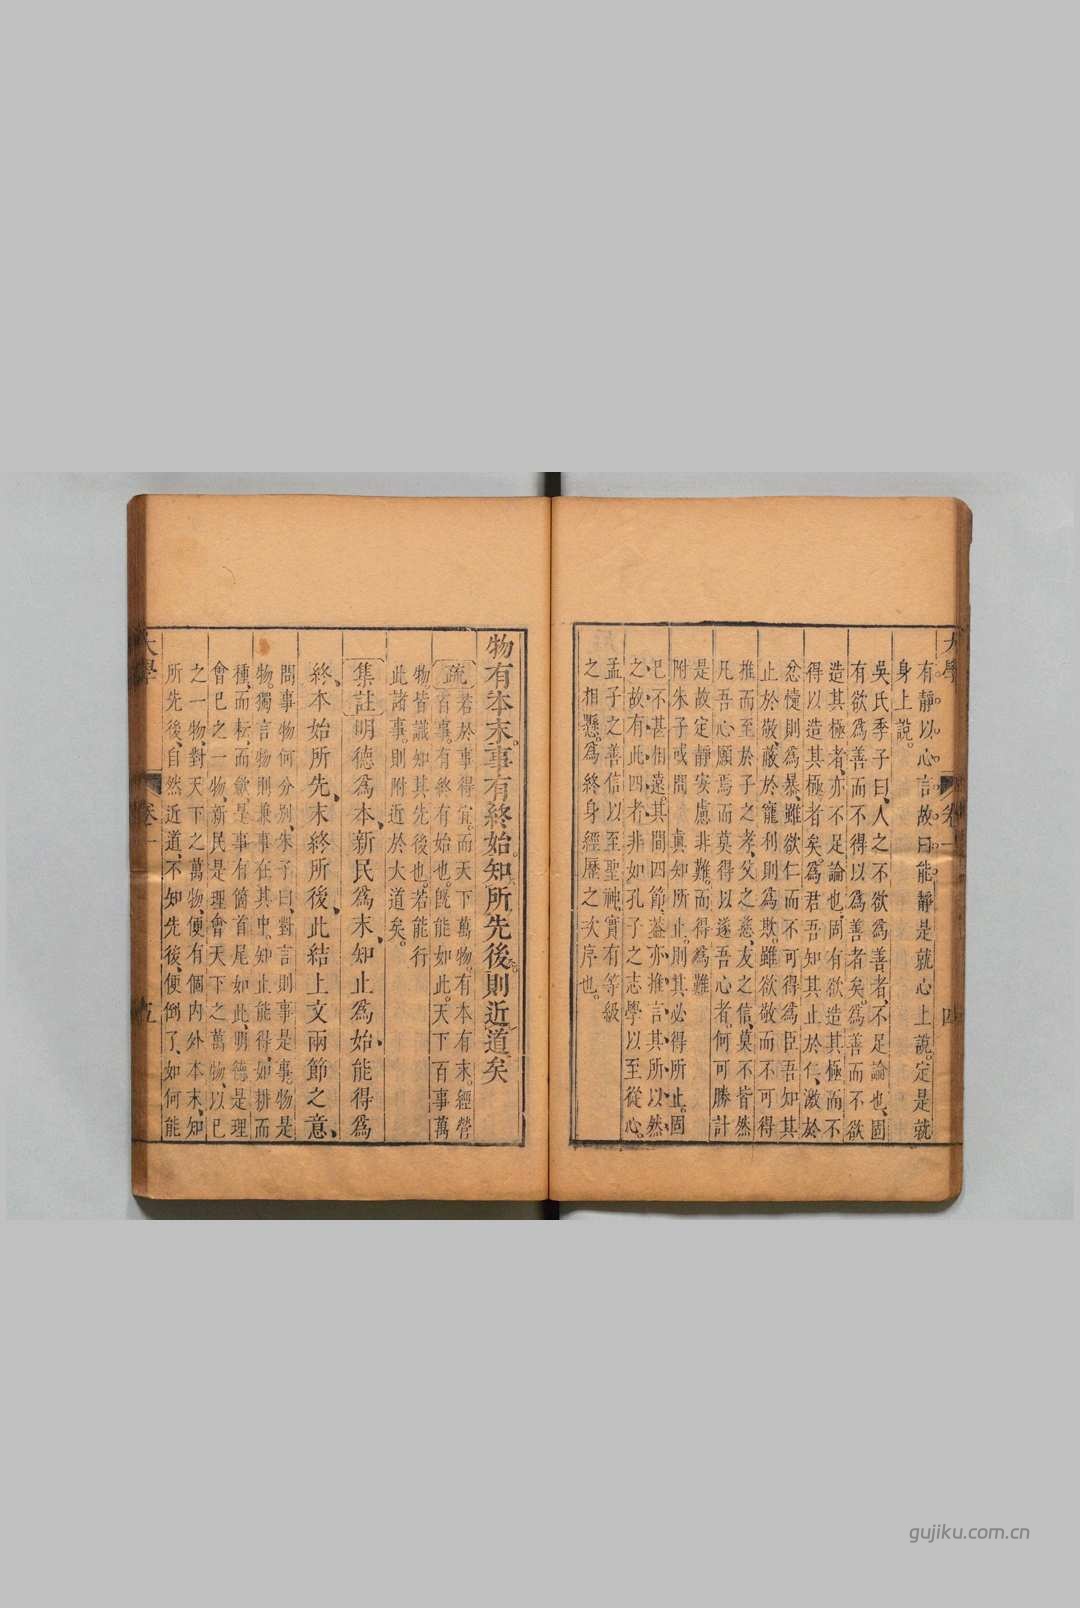 大學
卷一
四
有靜以心言故曰能靜是就心上說定是就
身上說。
吳氏季子曰人之不欲爲善者不足論也固
有欲爲善而不得以爲善者矣爲善而不欲
造其極者亦不足論也固有欲造其極而不
得以造其極者矣爲君吾知其止於仁激於
忿懥則爲暴雖欲仁而不可得爲臣吾知其
止於敬蔽於寵利則爲欺雖欲敬而不可得
推而至於子之孝父之慈友之信莫不皆然
凡吾心願焉而莫得以遂吾心者何可勝計
是故定靜安慮非難而得爲難
附朱子或問 眞知所止則其必得所止固
已不甚相遠其間四節蓋亦推言其所以然
之故有此四者非如孔子之志學以至從心
孟子之善信以至聖神實有等級
之相懸爲終身經歷之次序也。
物有本末事有終始知所先後則近道矣
疏 若於事得宜而天下萬物有本有末經營
百事有終有始也旣能如此天下百事萬
物皆識知其先後也若能行
此諸事則附近於大道矣。
集註 明德爲本新民爲末知止爲始能得爲
終本始所先末終所後此結上文兩節之意
問事物何分別朱子曰對言則事是事物是
物獨言物則兼事在其中知止能得如耕而
種而耘而斂是事有個首尾如此明德是理
會己之一物新民是理會天下之萬物以己
之一物對天下之萬物便有個內外本末知
所先後自然近道不知先後便倒了如何能
大學
卷一
五
gujiku.com.cn